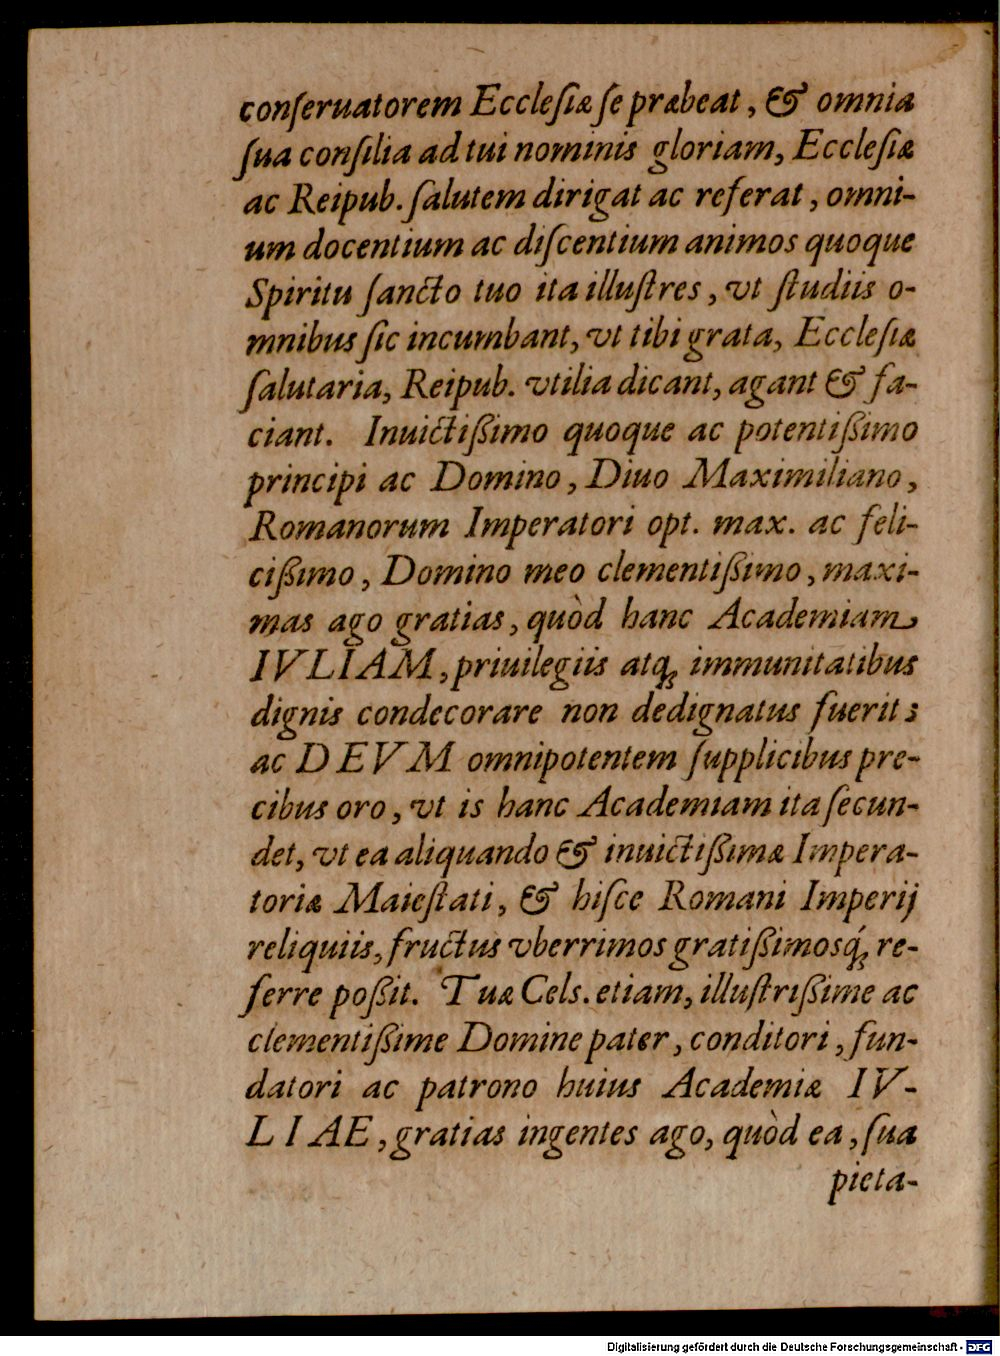 conſeruatorem Eccleſiæ ſe præbeat, & omnia
ſua conſilia ad tui nominis gloriam, Eccleſiæ
ac Reipub. ſalutem dirigat ac referat, omni-
um docentium ac diſcentium animos quoque
Spiritu ſancto tuo ita illuſtres, vt ſtudiis o-
mnibus ſic incumbant, vt tibi grata, Eccleſiæ
ſalutaria, Reipub. vtilia dicant, agant & fa-
ciant. Inuictißimo quoque ac potentißimo
principi ac Domino, Diuo Maximiliano,
Romanorum Imperatori opt. max. ac feli-
cißimo, Domino meo clementißimo, maxi-
mas ago gratias, quòd hanc Academiam
IVLIAM, priuilegiis atq́ꝫ immunitatibus
dignis condecorare non dedignatus fuerit;
ac DEVM omnipotentem ſupplicibus pre-
cibus oro, vt is hanc Academiam ita ſecun-
det, vt ea aliquando & inuictißimæ Impera-
toriæ Maieſtati, & hiſce Romani Imperij
reliquiis, fructus vberrimos gratißimosq́ꝫ re-
ferre poßit. Tuæ Cels. etiam, illuſtrißime ac
clementißime Domine pater, conditori, fun-
datori ac patrono huius Academiæ IV-
LIAE, gratias ingentes ago, quòd ea, ſua
pieta-
Digitalisierung gefördert durch die Deutsche Forschungsgemeinschaft - DFG